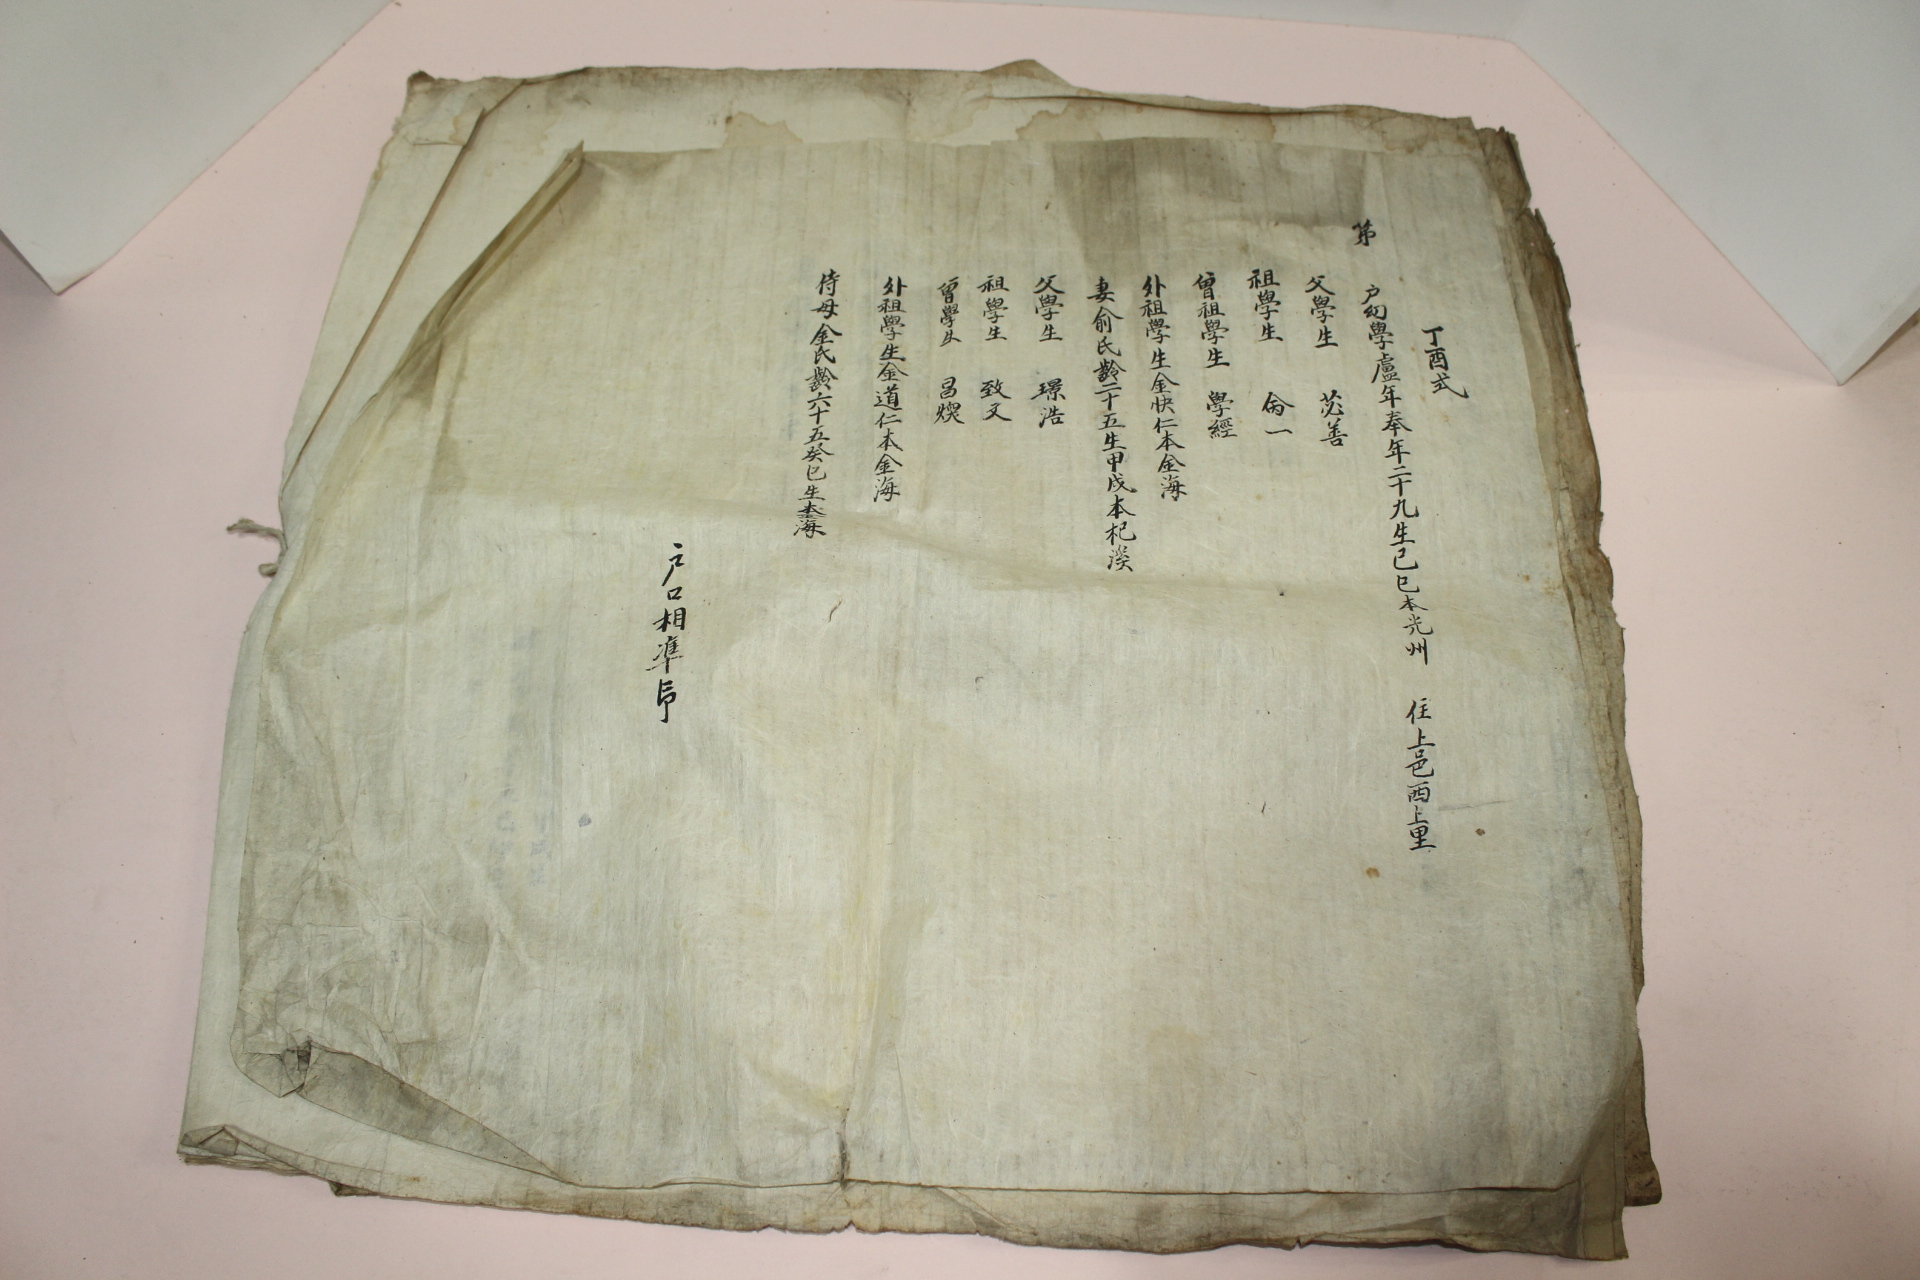 丁酉式
第
戶幼學盧年奉年二十九生己巳本光州 住上邑西上里
父學生 苾善
祖學生 侖一
曾祖學生 學經
外祖學生金快仁本金海
妻俞氏齡二十五生甲戌本杞溪
父學生 璟浩
祖學生 致文
曾學生 昌煥
外祖學生金道仁本金海
侍母金氏齡六十五癸巳生本金海
戶口相準印